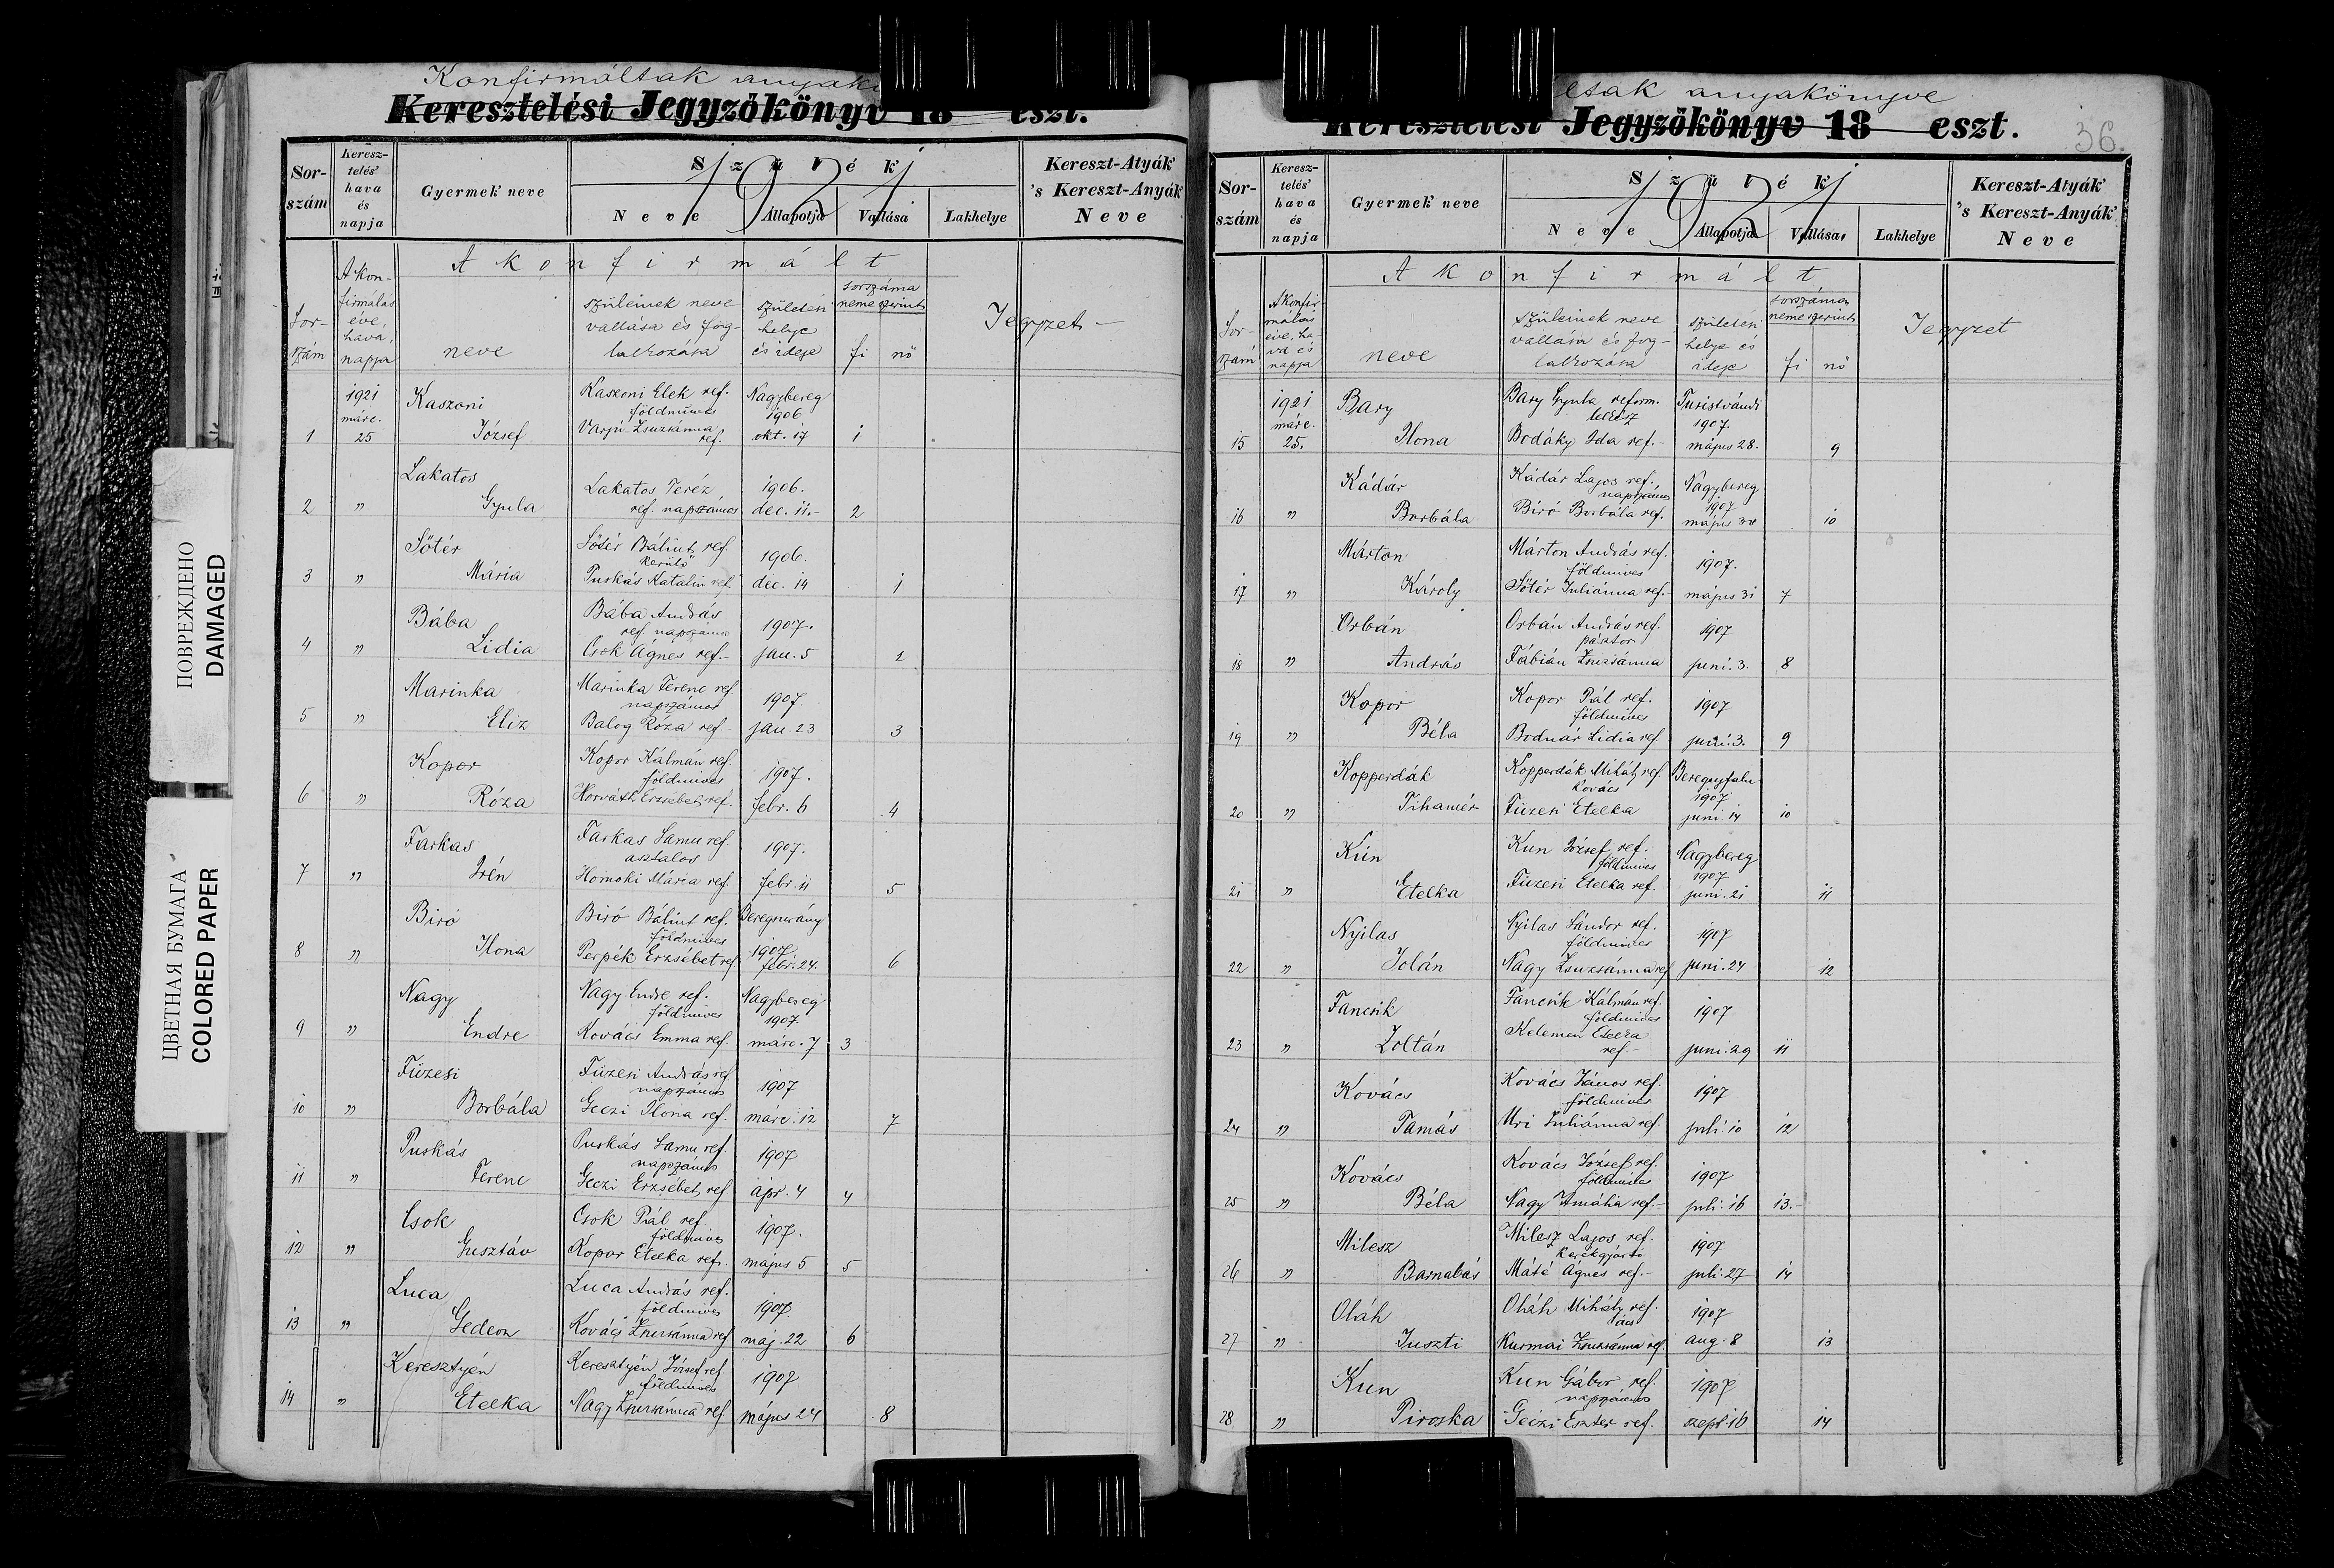 Konfirmáltak anyak
Keresztelési Jegyzőkönyv 18 eszt.
Sor-
szám
Keresz-
telés'
hava
és
napja
Gyermek neve
Szülék
1921
Neve
Állapotja
Vallása
Lakhelye
Kereszt-Atyák
's Kereszt-Anyák
Neve
A konfirmált
Sor-
szám
A kon-
firmálás
éve,
hava,
napja
neve
szüleinek neve
vallása és fog-
lalkozása
születési
helye
és ideje
sorszáma
neme szerint
fi nő
Jegyzet
1921
márc.
Kaszoni
Kaszoni Elek ref.
földmíves
Nagybereg
1906
1 25 József Varju Zsuzsánna ref. okt. 17 1
Lakatos Lakatos Teréz 1906.
2 " Gyula ref. napszámos dec. 11.- 2
Sőtér Sőtér Bálint ref. 1906.
kerülő
3 " Mária Puskás Katalin ref. dec. 14 1
Bába Bába András 1907.
ref. napszámos
4 " Lidia Csok Ágnes ref.- jan. 5 2
Marinka Marinka Ferenc ref. 1907.
napszámos
5 " Eliz Balog Róza ref. jan. 23 3
Kopor Kopor Kálmán ref. 1907.
földmives
6 " Róza Horváth Erzsébet ref. febr. 6 4
Farkas Farkas Samu ref. 1907.
asztalos
7 " Irén Homoki Mária ref. febr. 11 5
Biró Biró Bálint ref. Beregsurány
földmives 1907
8 " Ilona Perpék Erzsébet ref. febr. 24. 6
Nagy Nagy Endre ref. Nagybereg
földmives 1907.
9 " Endre Kovács Emma ref. márc. 7 3
Füzesi Füzesi András ref. 1907
napszámos
10 " Borbála Géczi Ilona ref. márc. 12 7
Puskás Puskás Samu ref. 1907
napszámos
11 " Ferenc Géczi Erzsébet ref. ápr. 4 4
Csok Csok Pál ref. 1907.
földmives
12 " Gusztáv Kopor Etelka ref. május 5 5
Luca Luca András ref. 1907.
földmives
13 " Gedeon Kovács Zsuzsánna ref. máj. 22 6
Keresztyén Keresztyén József ref. 1907
földmives
14 " Etelka Nagy Zsuzsánna ref. május 24 8
ltak anyakönyve
Keresztelési Jegyzőkönyv 18 eszt.
36.
Sor-
szám
Keresz-
telés'
hava
és
napja
Gyermek neve
Szülék
1921
Neve
Állapotja
Vallása
Lakhelye
Kereszt-Atyák
's Kereszt-Anyák
Neve
A konfirmált
Sor-
szám
A konfir-
málás
éve, ha-
va és
napja
neve
szüleinek neve
vallása és fog-
lalkozása
születési
helye és
ideje
sorszáma
neme szerint
fi nő
Jegyzet
1921
márc.
Bary Bary Gyula reform. Turistvándi
lelkész 1907.
15 25. Ilona Bodáky Ida ref.- május 28. 9
Kádár Kádár Lajos ref. Nagybereg
napszámos 1907
16 " Borbála Biró Borbála ref. május 30 10
Márton Márton András ref. 1907.
földmives
17 " Károly Sőtér Juliánna ref.- május 31 7
Orbán Orbán András ref. 1907
pásztor
18 " András Fábián Zsuzsánna juni. 3. 8
Kopor Kopor Pál ref. 1907
földmives
19 " Béla Bodnár Lidia ref juni. 3. 9
Kopperdák Kopperdák Mihály ref. Beregujfalu
kovács 1907
20 " Tihamér Füzesi Etelka juni. 14 10
Kun Kun József ref. Nagybereg
földmives 1907
21 " Etelka Füzesi Etelka ref. juni. 21 11
Nyilas Nyilas Sándor ref. 1907
földmives
22 " Jolán Nagy Zsuzsánna ref juni. 24 12
Fancsik Fancsik Kálmán ref. 1907
földmives
23 " Zoltán Kelemen Etelka ref.- juni. 29 11
Kovács Kovács János ref. 1907
földmives
24 " Tamás Uri Juliánna ref. juli. 10 12
Kovács Kovács József ref. 1907
földmives
25 " Béla Nagy Amália ref.- juli. 16 13.-
Milesz Milesz Lajos ref. 1907
kerékgyártó
26 " Barnabás Máté Ágnes ref.- juli. 27 14
Oláh Oláh Mihály ref. 1907
ács
27 " Juszti Kurmai Zsuzsánna ref. aug. 8 13
Kun Kun Gábor ref. 1907
napszámos
28 " Piroska Géczi Eszter ref. szept 16 14
ПОВРЕЖДЕНО
DAMAGED
ЦВЕТНАЯ БУМАГА
COLORED PAPER